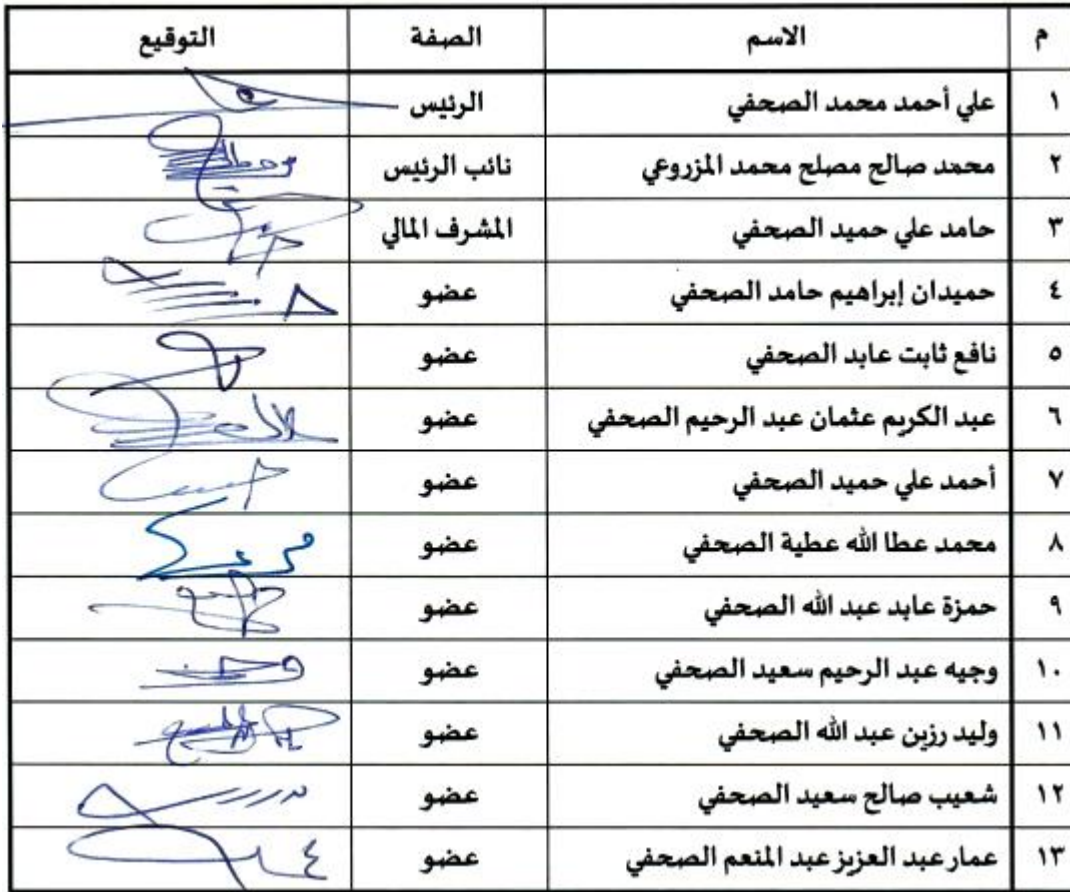 م الاسم الصفة التوقيع
١ علي أحمد محمد الصحفي الرئيس
٢ محمد صالح مصلح محمد المزروعي نائب الرئيس
٣ حامد علي حميد الصحفي المشرف المالي
٤ حميدان إبراهيم حامد الصحفي عضو
٥ نافع ثابت عابد الصحفي عضو
٦ عبد الكريم عثمان عبد الرحيم الصحفي عضو
٧ أحمد علي حميد الصحفي عضو
٨ محمد عطا الله عطية الصحفي عضو
٩ حمزة عابد عبد الله الصحفي عضو
١٠ وجيه عبد الرحيم سعيد الصحفي عضو
١١ وليد رزين عبد الله الصحفي عضو
١٢ شعيب صالح سعيد الصحفي عضو
١٣ عمار عبد العزيز عبد المنعم الصحفي عضو